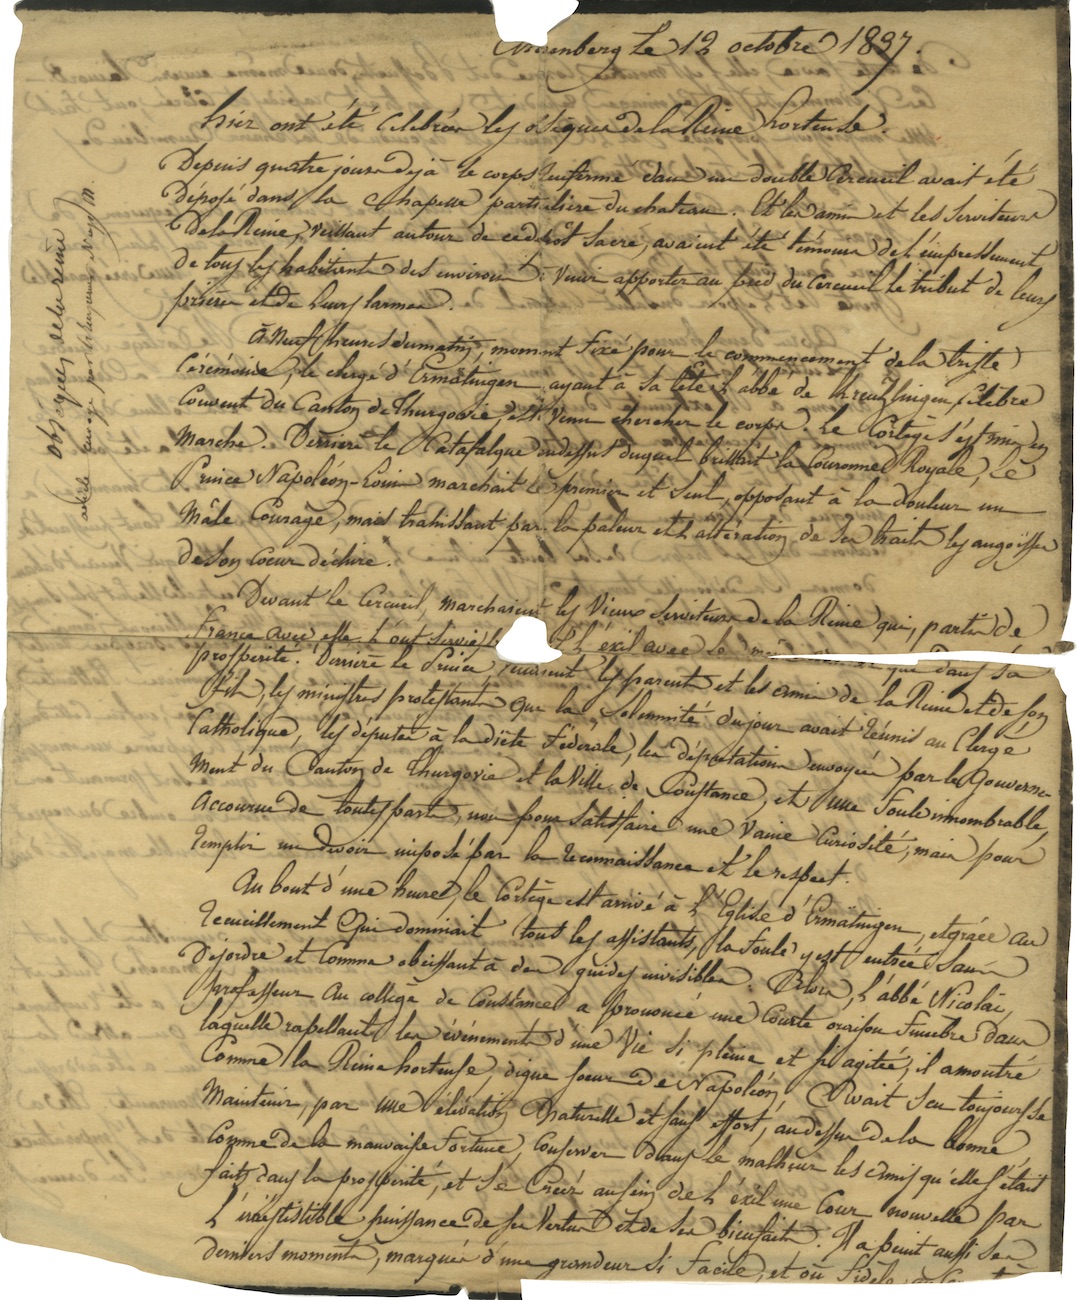 Arenenberg Le 12 octobre 1837.
hier ont été célébrées les obsèques de la Reine hortense.
Depuis quatre jours déjà le corps enfermé dans un double Cercueil avait été
Déposé dans la Chapelle particulière du chateau. Et les amis et les Serviteurs
De la Reine, veillant autour de ce dépôt Sacré, avaient été témoins de l'empressement
de tous les habitants des environs à venir apporter au pied du Cercueil le tribut de leurs
prières et de leurs larmes.
à Neuf heures du matin, moment fixé pour le commencement de la triste
Cérémonie, le clergé d'Ermatingen ayant à Sa tête L'abbé de Kreuzlingen, Célèbre
Couvent du Canton de Thurgovie, est Venu chercher le corps. Le Cortège s'est mis en
Marche. Derrière le Catafalque au dessus duquel brillait la Couronne Royale, Le
Prince Napoléon-Louis marchait le premier et Seul, opposant à la douleur un
Mâle Courage, mais trahissant par la paleur et l'altération de Ses traits les angoisses
de Son Coeur déchiré.
Devant le Cercueil, marchaient les Vieux Serviteurs de la Reine qui, partis de
France avec elle L'ont Servie L'exil avec le que dans Sa
prospérité. Derrière le Prince, venaient les parents et les amis de la Reine et de Son
Fils, les ministres protestants que la Solemnité du jour avait réunis au Clergé
Catholique, les députés à la diète Fédérale, les députations envoyées par le Gouverne-
Ment du Canton de Thurgovie et la Ville de Constance, et une Foule innombrable,
accourue de toutes parts, non pour Satisfaire une Vaine Curiosité, mais pour
remplir un devoir imposé par la reconnaissance et le respect.
Au bout d'une heure, le Cortège est arrivé à L'Eglise d'Ermatingen, et grâce au
recueillement Qui dominait tous les assistants, la Foule y est entrée Sans
Désordre et Comme obéissant à des guides invisibles. Alors, L'abbé Nicolaï,
professeur Au collège de Constance a prononcé une Courte oraison Funèbre dans
laquelle rapellant les événements d'une Vie Si pleine et Si agitée, il a montré
Comme la Reine hortense, digne Soeur de Napoléon, Avait Seu toujours Se
Maintenir, par une élévation Naturelle et Sans effort, au dessus de la bonne
Comme de la mauvaise Fortune, Conserver dans le malheur les amis qu'elle S'était
faits dans la prospérité, et Se Créer au Sein de L'éxil une Cour nouvelle par
L'irrésistible puissance de Ses Vertus et de Ses bienfaits. Il a peint aussi Ses
derniers moments, marqués d'une grandeur Si Facile, et où Fidèle
obsèques de la reine
article